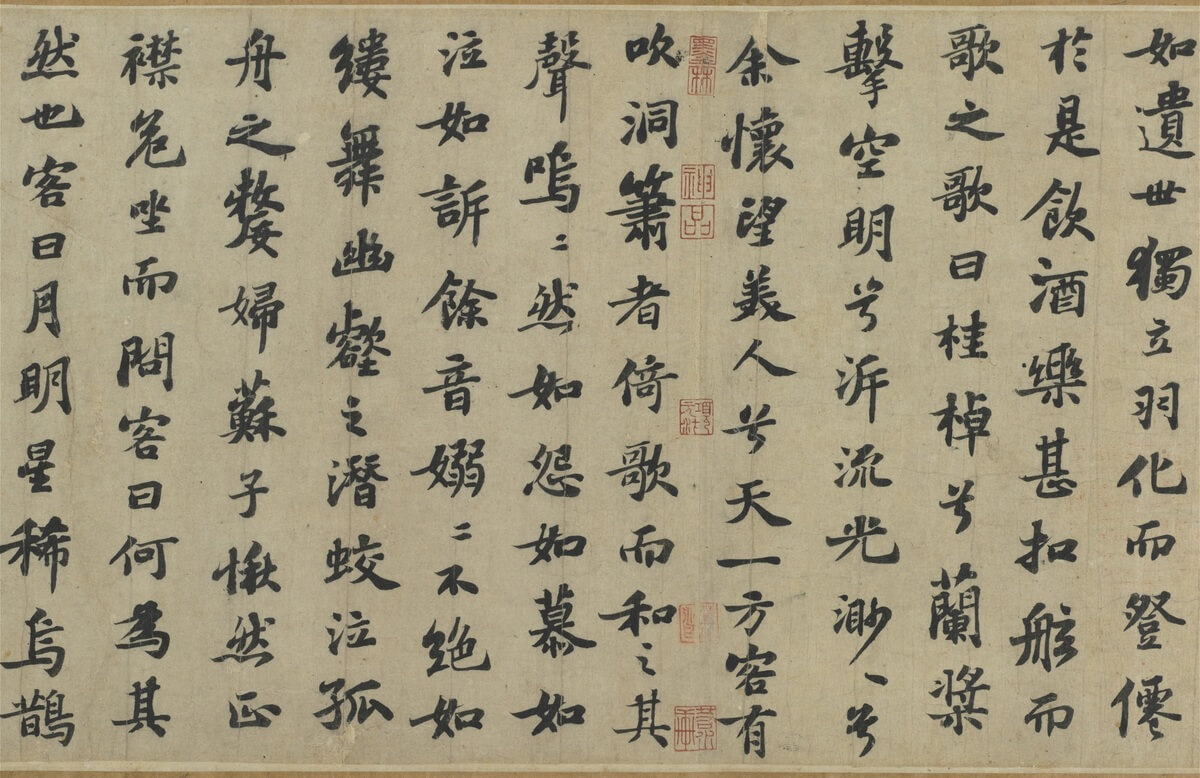 如遺世獨立羽化而登僊
於是飲酒樂甚扣舷而
歌之歌曰桂棹兮蘭槳
擊空明兮泝流光渺〻兮
余懷望美人兮天一方客有
墨林
神品
吹洞簫者倚歌而和之其
聲嗚〻然如怨如慕如
泣如訴餘音嫋〻不絕如
縷舞幽壑之潛蛟泣孤
舟之嫠婦蘇子愀然正
襟危坐而問客曰何為其
然也客曰月明星稀烏鵲